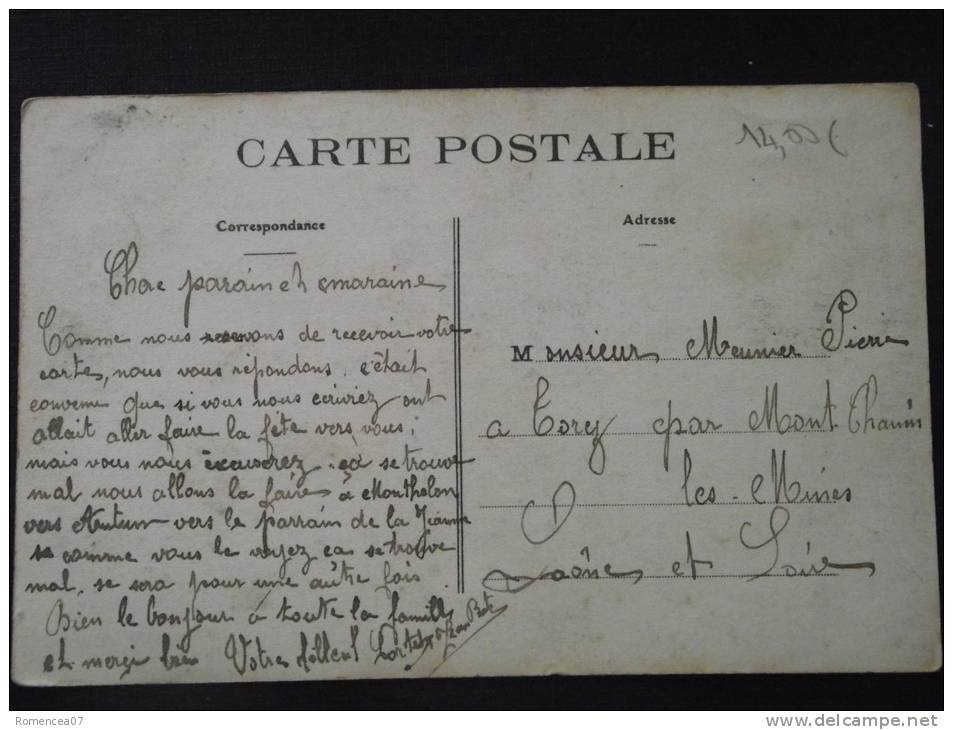 CARTE POSTALE
14,00€
Correspondance
Cher parain et maraine
Comme nous venons de recevoir votre
carte, nous vous répondons. c'était
convenu que si vous nous écriviez ont
allait aller faire la fête vers vous;
mais vous nous excuserez. ça se trouve
mal nous allons la faire à Monthelon
vers Autun vers le parrain de la Jeanne
comme vous le voyez ça se trouve
mal, se sera pour une autre fois.
Bien le bonjour à toute la famille
et merci bien Votre filleul
Adresse
Monsieur Meunier Pierre
a Torcy par Mont Chanin
les Mines
Saône et Loire
Romencea07
www.delcampe.net